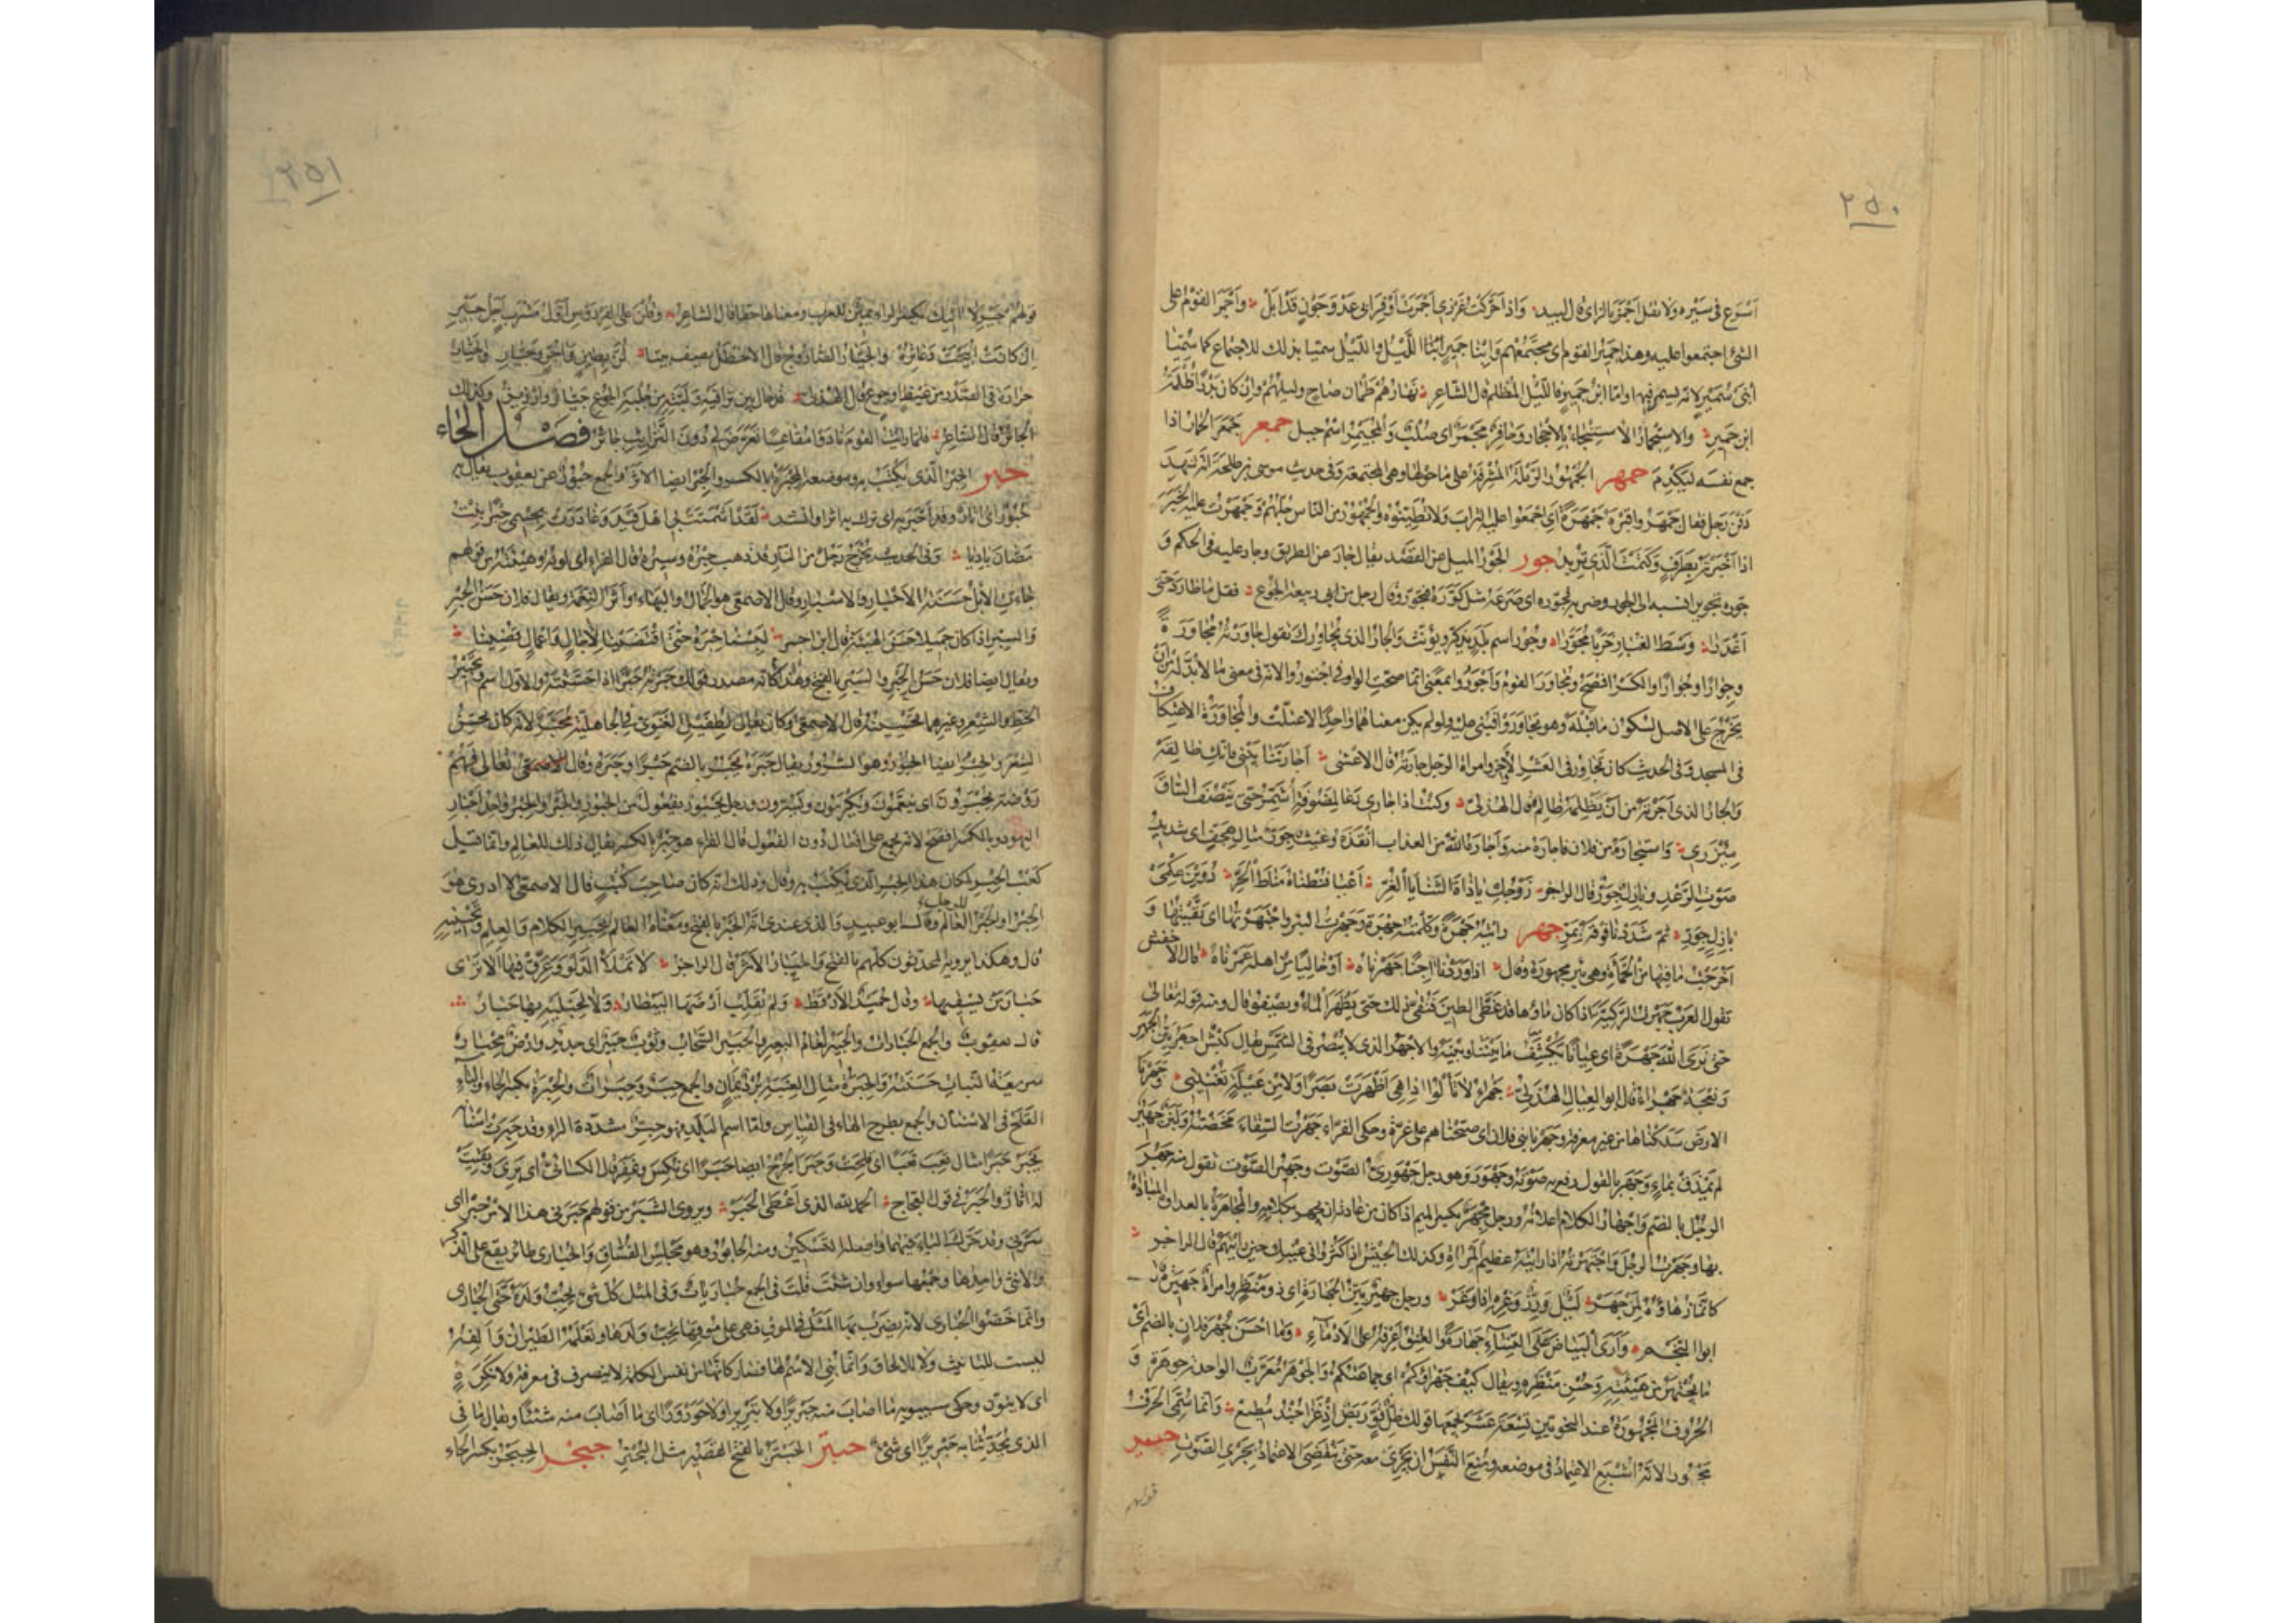 ٢٥٠
اسرع فى سيره ولا تقل اجمز بالزاى قال لبيد واذا حركت غرزى اجمرت او قرابى عدو جون قد ابل واجمر القوم على
الشئ اجتمعوا عليه وهذا جمير القوم اى مجتمعهم وابنا جمير ابنا الليل والليل سميتا بذلك للاجتماع كما سميتا
ابنى سمير لانه يسمر فيهما واما ابن جمير فالليل المظلم قال الشاعر نهارهم ظمآن ضاح وليلهم وان كان بدرا ظلمة
ابن جمير والاستجمار الاستنجاء بالاحجار وحافر مجمر اى صلب والمجيمر اسم جبل جمعر جمعر الحمار اذا
جمع نفسه ليكدم جمهر الجمهور الرملة المشرفة على ما حولها وهى المجتمعة وفى حديث موسى بن طلحة انه شهد
دفن رجل فقال جمهروا قبره جمهرة اى اجمعوا عليه التراب ولا تطينوه والجمهور من الناس جلهم وجمهرت عليه الخبر
اذا اخبرته بطرف وكتمت الذى تريد جور الجور الميل عن القصد يقال جار عن الطريق وجار عليه فى الحكم و
جوره تجويرا نسبه الى الجور وضربه فجوره اى صرعه مثل كوره فتجور وقال رجل من ابى ربيعة الجوع فقل ما طارد حتى
اغدرا وسط الغبار خربا مجورا وجور اسم بلد يذكر ويؤنث والجار الذى يجاورك تقول جاورته مجاورة
وجوارا وجوارا والكسر افصح وتجاور القوم واجتوروا بمعنى انما صحت الواو فى اجتوروا لانه فى معنى ما لا بد له من ان
يخرج على الاصل لسكون ما قبله وهو تجاوروا فبنى عليه ولو لم يكن معناهما واحدا لاعتلت والمجاورة الاعتكاف
فى المسجد وفى الحديث كان يجاور فى العشر الاخر وامرأة الرجل جارته قال الاعشى اجارتنا بينى فانك طالقة
والجار الذى اجرته من ان يظلمه ظالم قال الهذلى وكنت اذا جارى دعا لمضوفة اشمر حتى ينصف الساق
مئزرى واستجاره من فلان فاجاره منه واجاره الله من العذاب انقذه وغيث جور مثال هجف اى شديد
صوت الرعد وبازل جور قال الراجز زوجك يا ذات الثنايا الغر اعيا فنطناه مناط الجر دوين عكمى
بازل جور ثم شددنا فوقه بمر جهر رايته جهرة وكلمته جهرة وجهرت البئر واجتهرتها اى نقيتها و
اخرجت ما فيها من الحمأة وهى بئر مجهورة وقال اذا وردنا اجنا جهرناه او خاليا من اهله عمرناه قال الاخفش
تقول العرب جهرت الركية اذا كان ماؤها قد غطى الطين فنقى ذلك حتى يظهر الماء ويصفو قال ومنه قوله تعالى
حتى نرى الله جهرة اى عيانا يكشف ما بيننا وبينه والاجهر الذى لا يبصر فى الشمس يقال كبش اجهر بين الجهر
ونعجة جهراء قال ابو العيال الهذلى جهراء لا تألوا اذا هى اظهرت بصرا ولا من عيلة تغنينى وجهرنا
الارض سلكناها من غير معرفة وجهرنا بنى فلان اى صبحناهم على غرة وحكى الفراء جهرت السقاء مخضته ولبن جهير
لم يمذق بماء وجهر بالقول رفع به صوته وجهور وهو رجل جهورى الصوت وجهير الصوت تقول منه جهر
الرجل بالضم واجهار الكلام اعلانه ورجل مجهر بكسر الميم اذا كان من عادته ان يجهر بكلامه والمجاهرة بالعداوة المبادأة
بها وجهرت الرجل واجتهرته اذا رايته عظيم المرآة وكذلك الجيش اذا كثروا فى عينك حين رايتهم قال الراجز
كانما زهاؤه لمن جهر ليل ورز وغره اذا وغر ورجل جهير بين الجهارة اى ذو منظر وامرأة جهيرة قال
ابو النجم وارى البياض على النساء جهارة والعتق اعرفه على الادماء وما احسن جهر فلان بالضم اى
ما يجتهر من هيئته وحسن منظره ويقال كيف جهراؤكم اى جماعتكم والجوهر معرب الواحدة جوهرة و
الحروف المجهورة عند النحويين تسعة عشر يجمعها قولك ظل قو ربض اذ غزا جند مطيع وانما سمى الحرف
مجهورا لانه اشبع الاعتماد فى موضعه ومنع النفس ان يجرى معه حتى ينقضى الاعتماد بجرى الصوت جير
قولهم
٢٥١
قولهم جير لا آتيك بكسر الراء يمين للعرب ومعناها حقا قال الشاعر وقلن على الفردوس اول مشرب اجل جير
ان كانت ابيحت دعاثره والجيار الصاروج قال الاخطل يصف بيتا لز بطين وآجر وجيار والجيار
حرارة فى الصدر من غيظ او جوع قال الهذلى قد حال بين تراقيه ولبته من جلبة الجوع جيار وارزيز وكذلك
الجائر قال الشاعر فلما رايت القوم نادوا مقاعسا تعرض لى دون الترائب جائر فصل الحاء
حبر الحبر الذى يكتب به وموضعه المحبرة بالكسر والحبر ايضا الاثر والجمع حبور عن يعقوب يقال به
حبور اى آثار وقد احبر به اى ترك به اثرا وانشد لقد اشمتت بى اهل فيد وغادرت بجسمى حبرا بنت
مصان باديا وفى الحديث يخرج رجل من النار قد ذهب حبره وسبره قال الفراء اى لونه وهيئته من قولهم
جاءت الابل حسنة الاحبار والاسبار وقال الاصمعى هو الجمال والبهاء واثر النعمة ويقال فلان حسن الحبر
والسبر اذا كان جميلا حسن الهيئة قال ابن احمر لبسنا حبره حتى اقتضينا لآجال واعمال قضينا
ويقال ايضا فلان حسن الحبر والسبر بالفتح وهذا كانه مصدر قولك حبرته حبرا اذا حسنته والاول اسم وتحبير
الخط والشعر وغيرهما تحسينه قال الاصمعى وكان يقال لطفيل الغنوى فى الجاهلية محبر لانه كان يحسن
الشعر والحبر ايضا الحبور وهو السرور يقال حبره يحبره بالضم حبرا وحبرة وقال تعالى فهم
فى روضة يحبرون اى ينعمون ويكرمون ويسرون ورجل يحبور يفعول من الحبور والحبر والحبر واحد احبار
اليهود وبالكسر افصح لانه يجمع على افعال دون الفعول قال الفراء هو حبر بالكسر يقال ذلك للعالم وانما قيل
كعب الحبر لمكان هذا الحبر الذى يكتب به وقال وذلك انه كان صاحب كتب قال الاصمعى لا ادرى هو
الحبر او الحبر للرجل العالم وقال ابو عبيد والذى عندى انه الحبر بالفتح ومعناه العالم بتحبير الكلام والعلم وتحسينه
قال وهكذا يرويه المحدثون كلهم بالفتح والحبار الاثر قال الراجز لا تملأ الدلو وعرق فيها الا ترى
حبار من يسقيها وقال حميد الارقط ولم يقلب ارضها البيطار ولا لحبليه بها حبار
قال يعقوب والجمع الحبارات والحبير لغام البعير والحبير السحاب وثوب حبير اى جديد وارض محبار
سريعة النبات حسنته والحبرة مثال العنبة برد يمان والجمع حبر وحبرات والحبرة بكسر الحاء والباء
القلح فى الاسنان والجمع بطرح الهاء فى القياس واما اسم البلد فهو حبر مشددة الراء وقد حبرت اسنانه
تحبر حبرا مثال تعب تعبا اى قلحت وحبر الجرح ايضا حبرا اى نكس وغفر قال الكسائى اى برئ وبقيت
له آثار والحبر فى قول العجاج الحمد لله الذى اعطى الحبر ويروى الشبر من قولهم حبرنى هذا الامر حبرا اى
سرنى وقد حرك الباء فيهما واصله التسكين ومنه الحابور وهو مجلس الفساق والحبارى طائر يقع على الذكر
والانثى واحدها وجمعها سواء وان شئت قلت فى الجمع حباريات وفى المثل كل شئ يحب ولده حتى الحبارى
وانما خصوا الحبارى لانه يضرب بها المثل فى الموق فهى على موقها تحب ولدها وتعلمه الطيران والفه
ليست للتانيث ولا للالحاق وانما بنى الاسم لها فصار كانها من نفس الكلمة لا ينصرف فى معرفة ولا نكرة
اى لا ينون وحكى سيبويه ما اصاب منه حبربرا ولا تبربرا ولا حورورا اى ما اصاب منه شيئا ويقال ما فى
الذى تحدثنا به حبربر اى شئ حبتر الحبتر بالفتح القصير مثل البحتر حبجر الحبجر بكسر الحاء